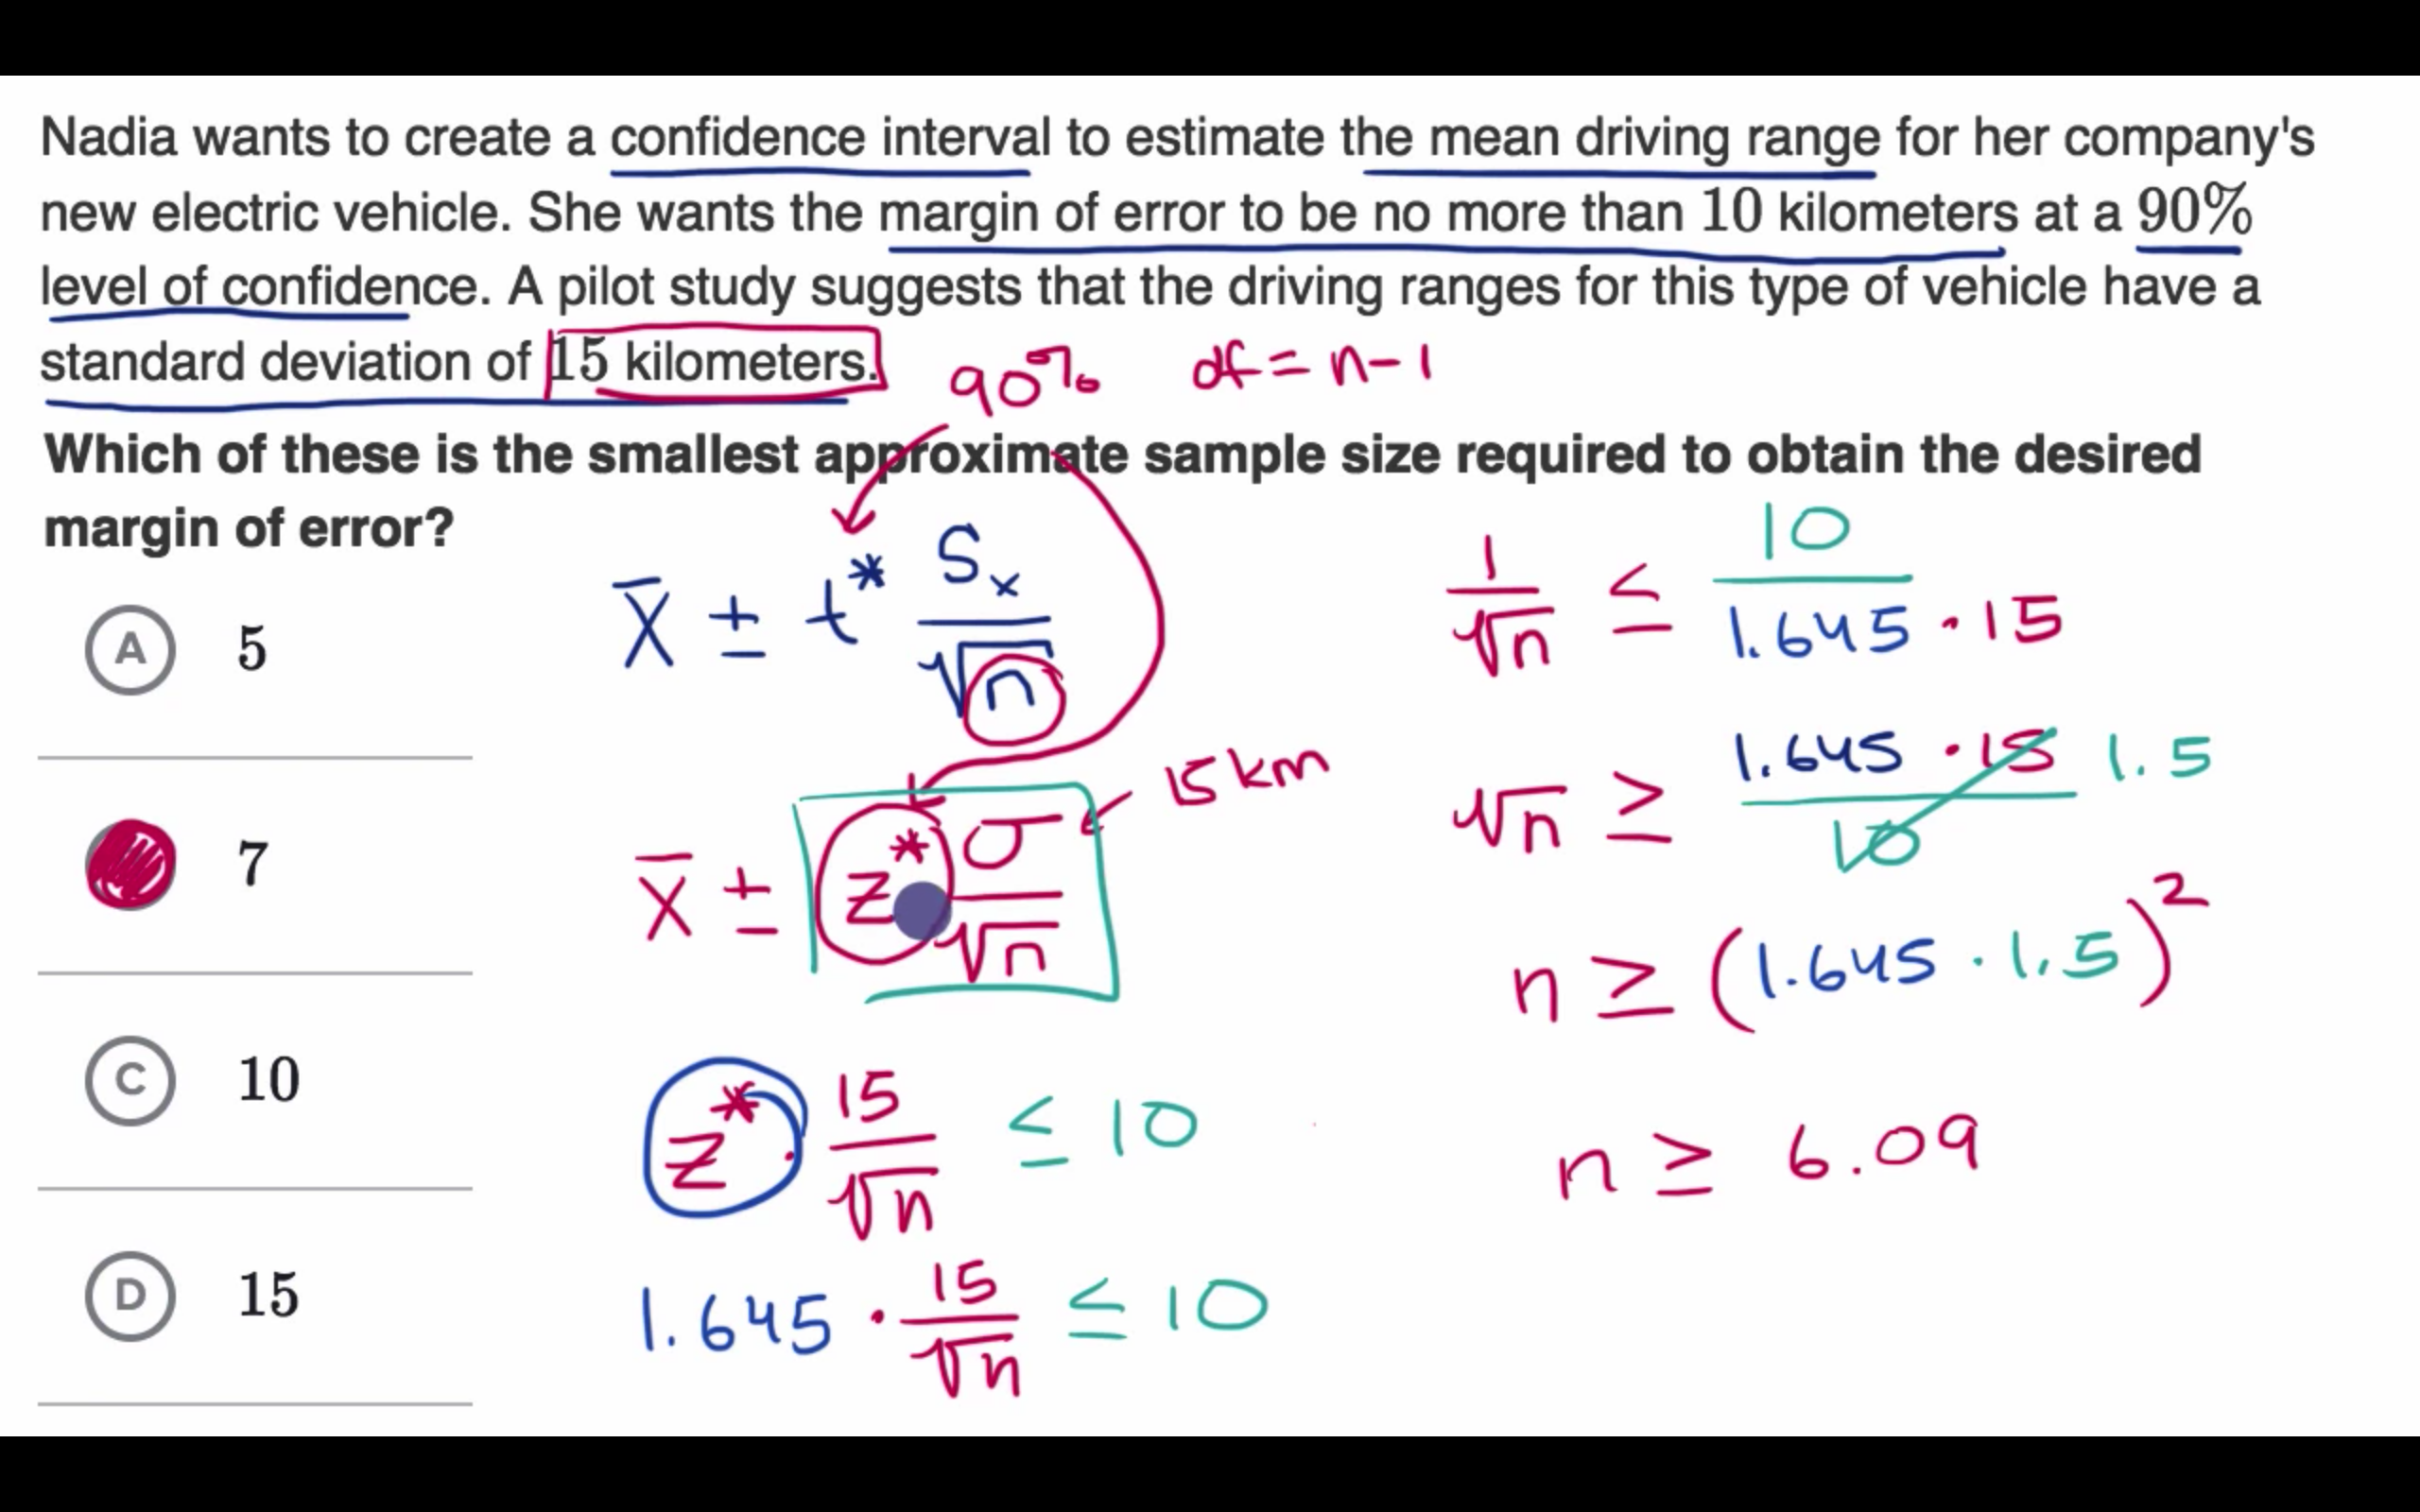 Nadia wants to create a confidence interval to estimate the mean driving range for her company's
new electric vehicle. She wants the margin of error to be no more than 10 kilometers at a 90%
level of confidence. A pilot study suggests that the driving ranges for this type of vehicle have a
standard deviation of 15 kilometers.
90% df = n-1
Which of these is the smallest approximate sample size required to obtain the desired
margin of error?
A 5
7
C 10
D 15
x̄ ± t* Sx/√n
15 km
x̄ ± z* σ/√n
z* · 15/√n ≤ 10
1.645 · 15/√n ≤ 10
1/√n ≤ 10/1.645 · 15
√n ≥ 1.645 · 15/10 1.5
n ≥ (1.645 · 1.5)²
n ≥ 6.09